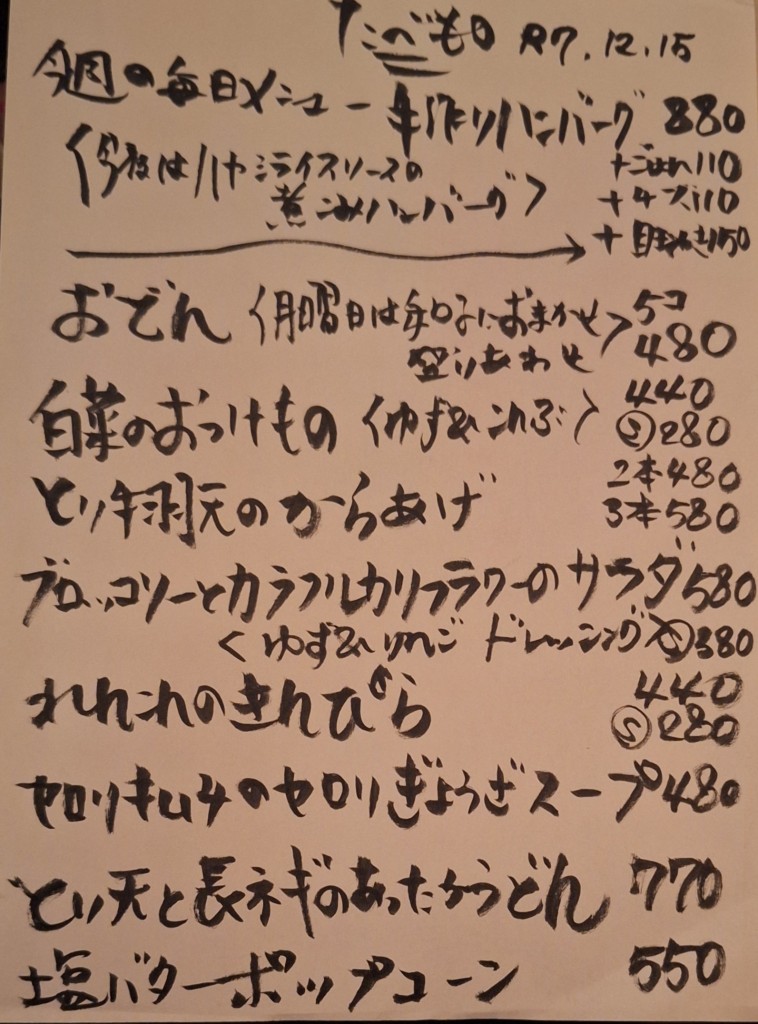 たべもの R7.12.15
今週の毎日メニュー 手作りハンバーグ 880
〈今夜はハヤシライスソースの +ごはん110
煮こみハンバーグ〉 +チーズ110
+目玉やき150
おでん 〈月曜日は におまかせ 5コ
盛りあわせ〉 480
白菜のおつけもの 〈ゆず&こんぶ〉 440
Ⓢ280
とり手羽元のからあげ 2本480
3本580
ブロッコリーとカラフルカリフラワーのサラダ 580
〈ゆず&りんごドレッシング〉 Ⓢ380
れんこんのきんぴら 440
Ⓢ280
セロリキムチのセロリぎょうざスープ 480
とり天と長ネギのあったかうどん 770
塩バターポップコーン 550